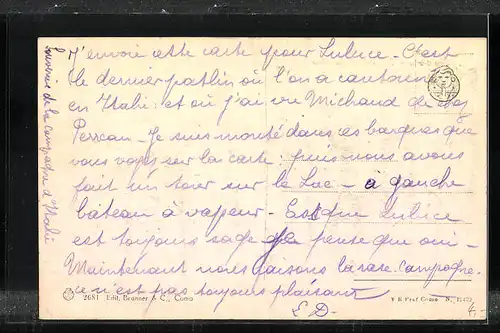 J'envoie cette carte pour Luluce. C'est
le dernier patlin où l'on a cantonné
en Itali: et où j'ai vu Michaud de
Perreau - Je suis monté dans ces barques que
vous voyez sur la carte: puis nous avons
fait un tour sur le Lac - à gauche
bateau à vapeur - Esque Luluce
est toujours sage je pense que oui -
Maintenant nous faisons la rase campagne.
ce n'est pas toujours plaisant
E.D.
Souvenir de la campagne d'Itali
2681 Edit. Brunner & C., Como
4.-